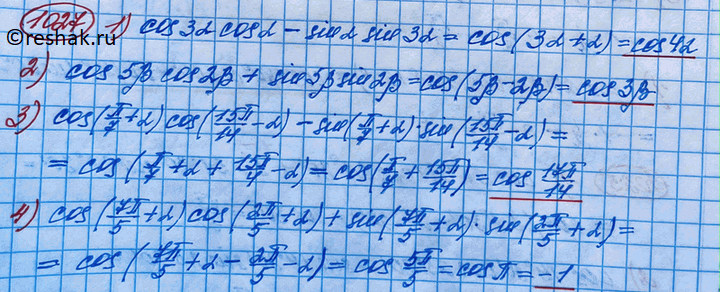 1027 1) cos3α cosα − sinα sin3α = cos(3α+α) = cos4α
©reshak.ru
2) cos5β cos2β + sin5β sin2β = cos(5β−2β) = cos3β
3) cos(π/7+α) cos(15π/14−α) − sin(π/7+α)·sin(15π/14−α) =
= cos(π/7+α+15π/14−α) = cos(π/7+15π/14) = cos 17π/14
4) cos(7π/5+α) cos(2π/5+α) + sin(7π/5+α)·sin(2π/5+α) =
= cos(7π/5+α−2π/5−α) = cos 5π/5 = cosπ = −1